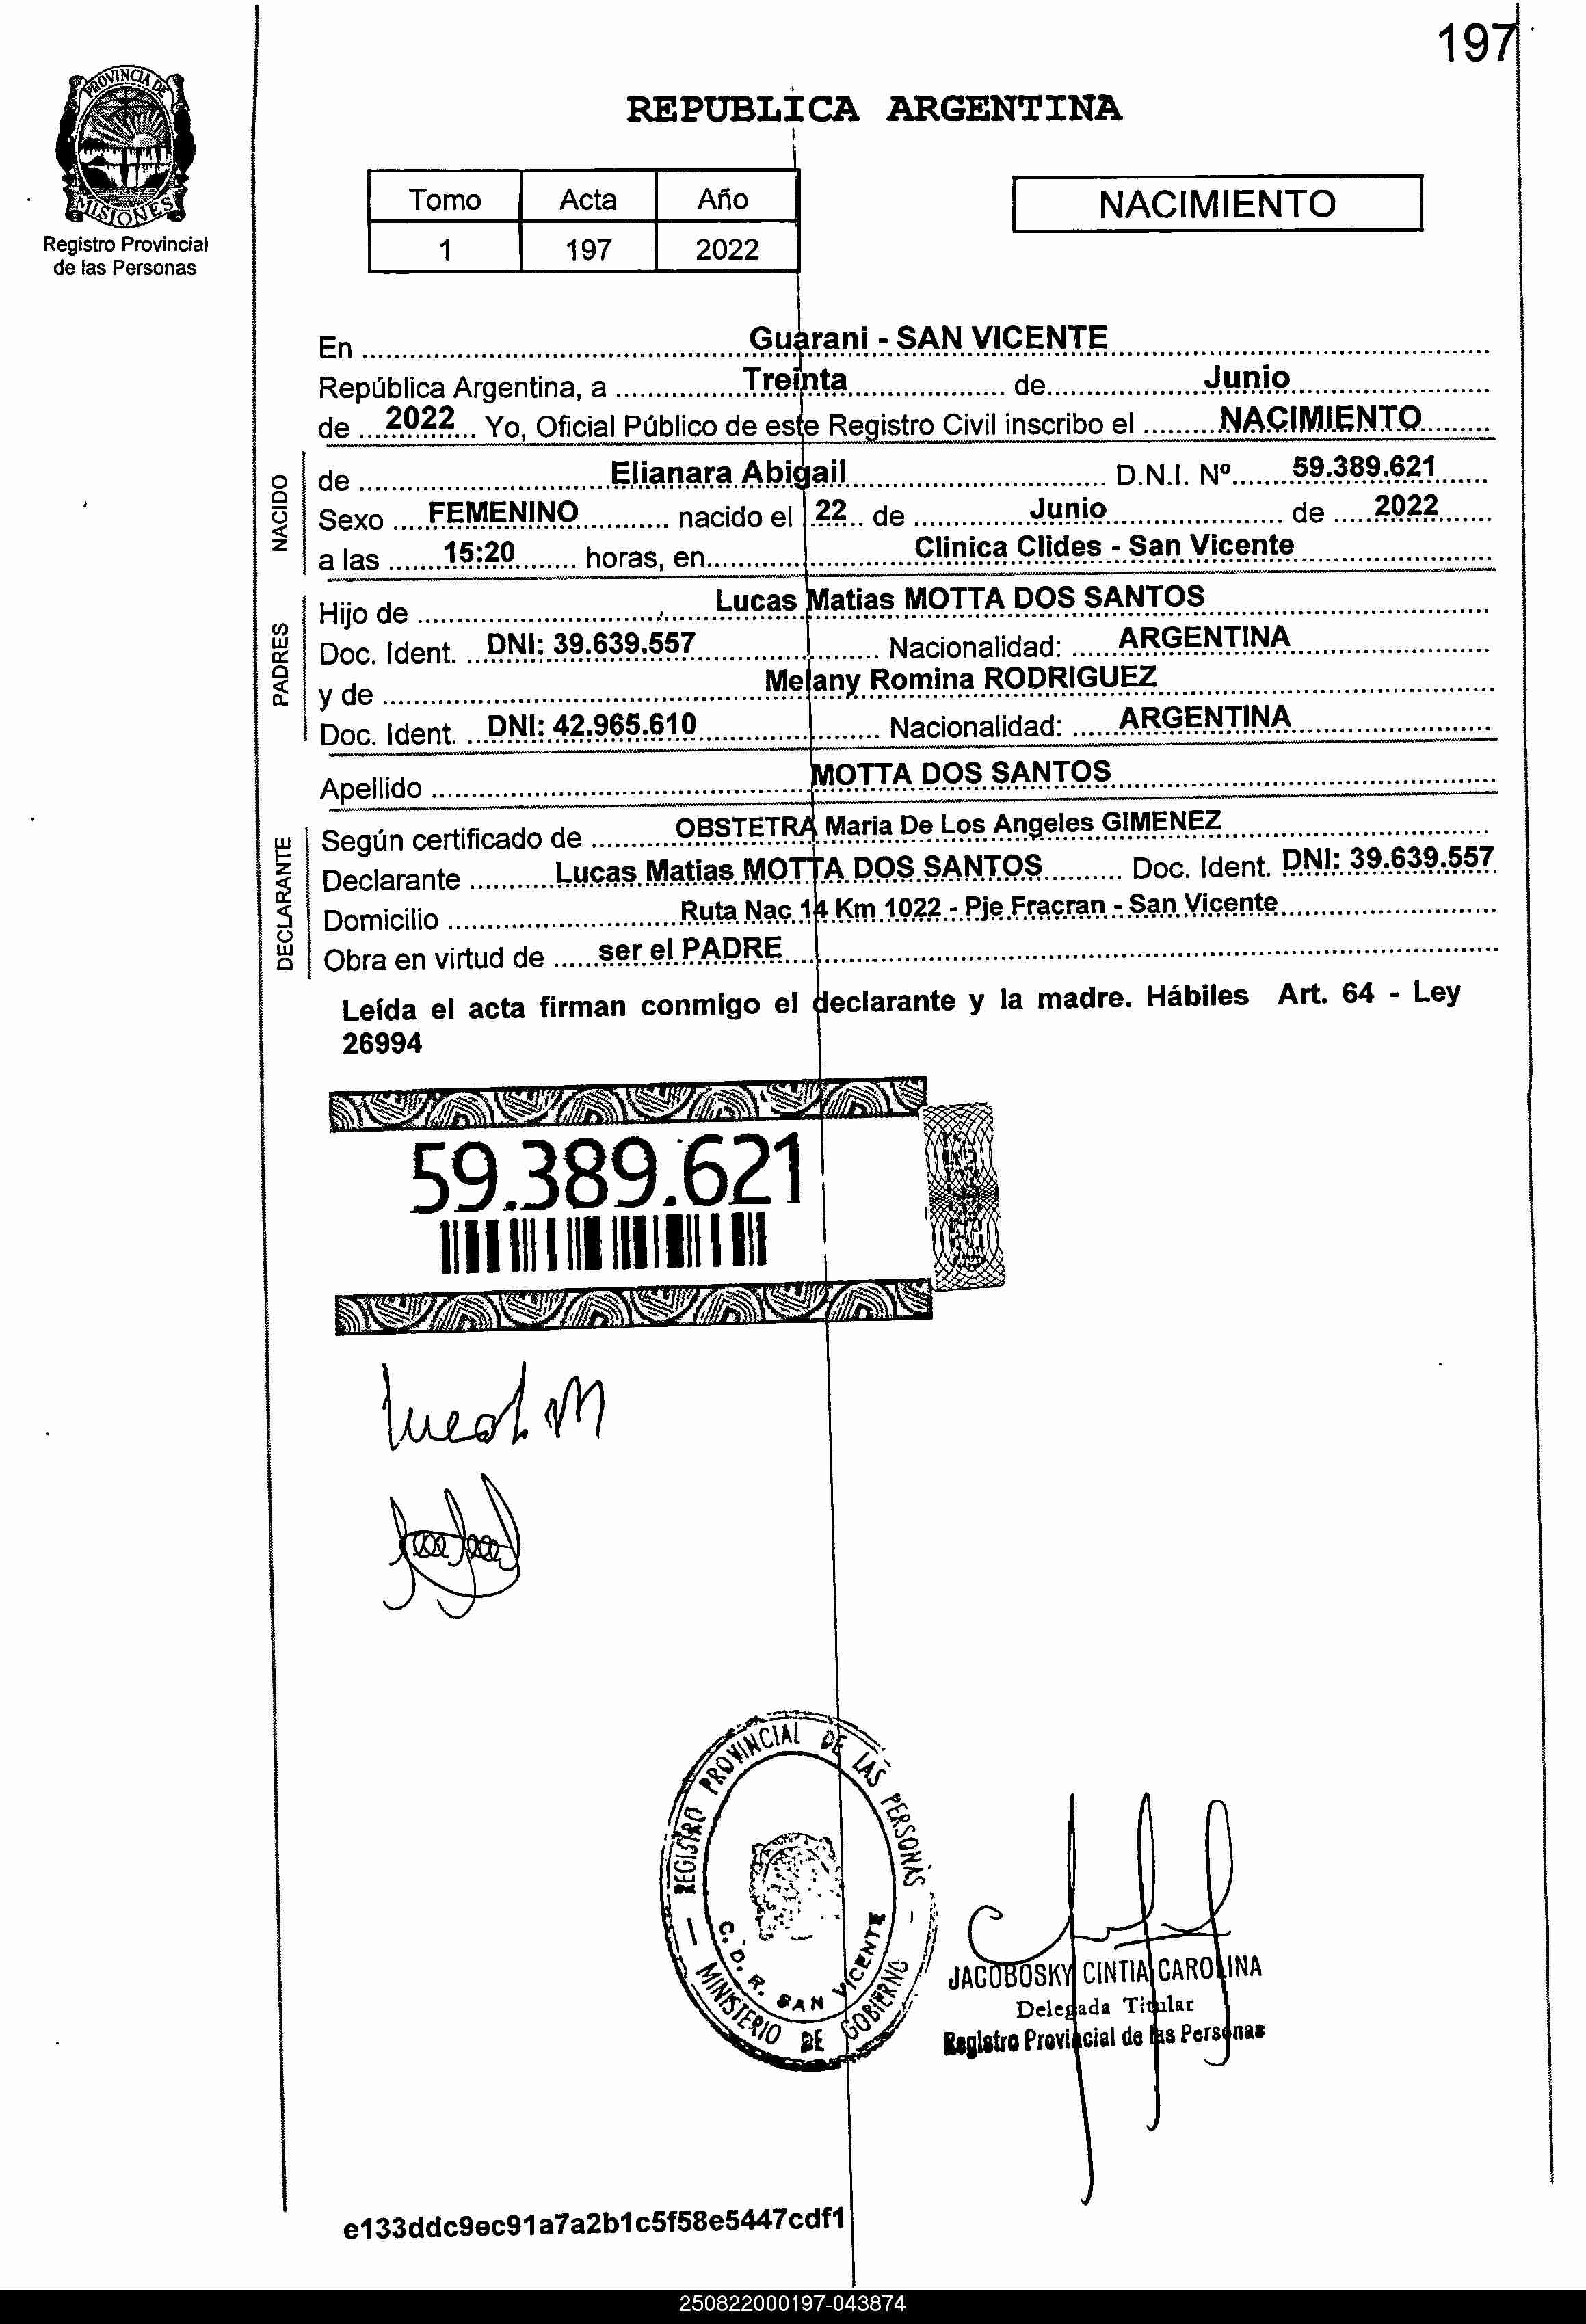 197
PROVINCIA DE
MISIONES
Registro Provincial
de las Personas
REPUBLICA ARGENTINA
Tomo Acta Año
1 197 2022
NACIMIENTO
En Guarani - SAN VICENTE
República Argentina, a Treinta de Junio
de 2022 Yo, Oficial Público de este Registro Civil inscribo el NACIMIENTO
NACIDO
de Elianara Abigail D.N.I. Nº 59.389.621
Sexo FEMENINO nacido el 22 de Junio de 2022
a las 15:20 horas, en Clinica Clides - San Vicente
PADRES
Hijo de Lucas Matias MOTTA DOS SANTOS
Doc. Ident. DNI: 39.639.557 Nacionalidad: ARGENTINA
y de Melany Romina RODRIGUEZ
Doc. Ident. DNI: 42.965.610 Nacionalidad: ARGENTINA
Apellido MOTTA DOS SANTOS
DECLARANTE
Según certificado de OBSTETRA Maria De Los Angeles GIMENEZ
Declarante Lucas Matias MOTTA DOS SANTOS Doc. Ident. DNI: 39.639.557
Domicilio Ruta Nac 14 Km 1022 - Pje Fracran - San Vicente
Obra en virtud de ser el PADRE
Leída el acta firman conmigo el declarante y la madre. Hábiles Art. 64 - Ley
26994
59.389.621
REGISTRO PROVINCIAL DE LAS PERSONAS
C. D. R. SAN VICENTE
MINISTERIO DE GOBIERNO
JACOBOSKY CINTIA CAROLINA
Delegada Titular
Registro Provincial de las Personas
e133ddc9ec91a7a2b1c5f58e5447cdf1
250822000197-043874